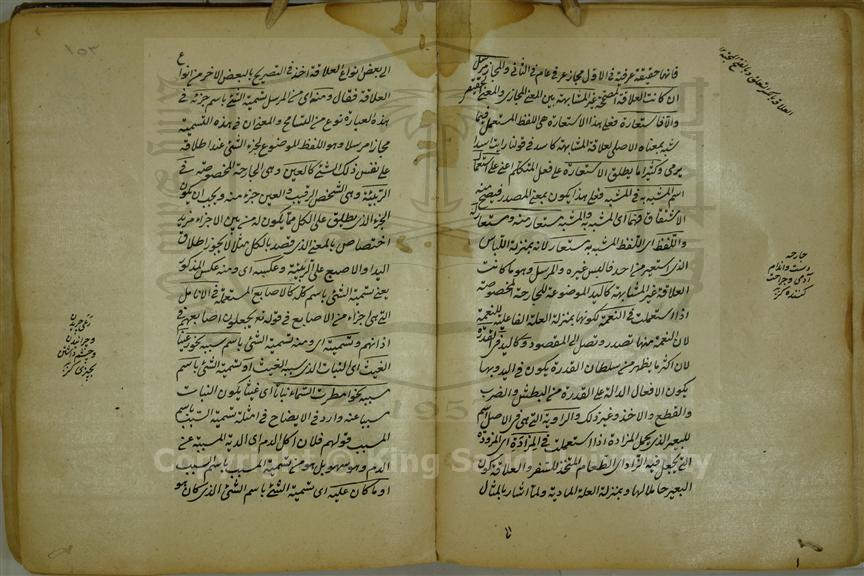 فانها حقيقة عرفية في الاول مجاز عرفي عام في الثاني والمجاز مرسل
ان كانت العلاقة المصححة غير المشابهة بين المعنى المجازي والمعنى الحقيقي
والا فاستعارة فعلى هذا الاستعارة هي اللفظ المستعمل فيما
شبه بمعناه الاصلي لعلاقة المشابهة كاسد في قولنا رايت اسدا
يرمي وكثيرا ما يطلق الاستعارة على فعل المتكلم اعني على استعمال
اسم المشبه به في المشبه فعلى هذا يكون بمعنى المصدر فيصح منه
الاشتقاق فهما اى المشبه به والمشبه مستعار منه ومستعار له
واللفظ اى اللفظ المشبه به مستعار لانه بمنزلة اللباس
الذى استعير من احد فالبس غيره والمرسل وهو ما كانت
العلاقة غير المشابهة كاليد الموضوعة للجارحة المخصوصة
اذا استعملت في النعمة لكونها بمنزلة العلة الفاعلية للنعمة
لان النعمة منها تصدر وتصل الى المقصود وكاليد في القدرة
لان اكثر ما يظهر من سلطان القدرة يكون في اليد وبها
يكون الافعال الدالة على القدرة من البطش والضرب
والقطع والاخذ وغير ذلك والراوية التي هي في الاصل اسم
للبعير الذى يحمل المزادة اذا استعملت في المزادة اى المزود
الذى يجعل فيه الزاد اى الطعام المتخذ للسفر والعلاقة كون
البعير حاملا لها وبمنزلة العلة المادية ولما اشار بالمثال
الى بعض انواع العلاقة اخذ في التصريح بالبعض الاخر من انواع
العلاقة فقال ومنه اى من المرسل تسمية الشئ باسم جزئه في
هذه العبارة نوع من التسامح والمعنى ان في هذه التسمية
مجازا مرسلا وهو اللفظ الموضوع لجزء الشئ عند اطلاقه
على نفس ذلك الشئ كالعين وهى الجارحة المخصوصة في
الربيئة وهى الشخص الرقيب والعين جزء منه ويجب ان يكون
الجزء الذى يطلق على الكل مما يكون له من بين الاجزاء مزيد
اختصاص بالمعنى الذى قصد بالكل مثلا لا يجوز اطلاق
اليد او الاصبع على الربيئة وعكسه اى ومنه عكس المذكور
يعنى تسمية الشئ باسم كله كالاصابع المستعملة في الانامل
التي هى اجزاء من الاصابع في قوله تع يجعلون اصابعهم في
اذانهم وتسميته اى ومنه تسمية الشئ باسم سببه نحو رعينا
الغيث اى النبات الذى سببه الغيث او تسمية الشئ باسم
مسببه نحو امطرت السماء نباتا اى غيثا يكون النبات
مسببا عنه واورد في الايضاح في امثلة تسمية السبب باسم
المسبب قولهم فلان اكل الدم اى الدية المسببة عن
الدم وهو سهو بل هو من تسمية المسبب باسم السبب
او ما كان عليه اى تسمية الشئ باسم الشئ الذى كان هو
جارحه
دست واندام
آدمى وجراحت
كننده كنز
١٥٣
Copyright © King Saud University
1957